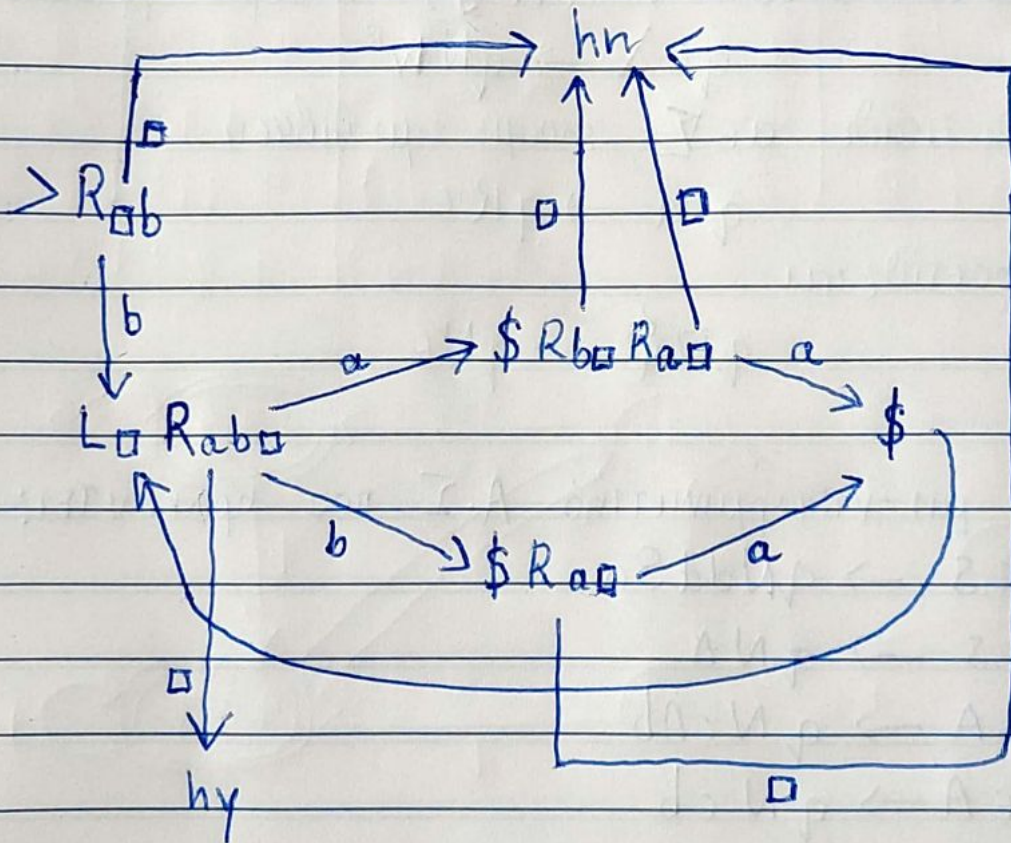 hn
□
> R□b
□ □
b
$ Rb□ Ra□
a a
L□ Rab□ $
b a
$ Ra□
□
hy
□